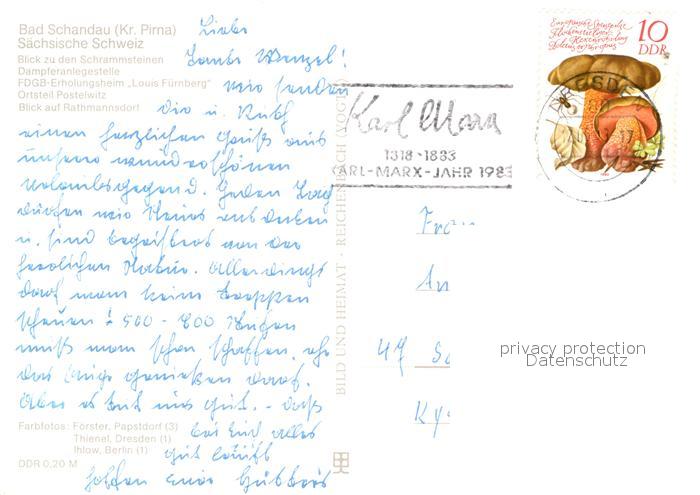 Bad Schandau (Kr. Pirna)
Sächsische Schweiz
Blick zu den Schrammsteinen
Dampferanlegestelle
FDGB-Erholungsheim „Louis Fürnberg"
Ortsteil Postelwitz
Blick auf Rathmannsdorf
Liebe
Tante Wenzel!
wir senden
dir u. Ruth
einen herzlichen Gruß aus
unsere wunderschönen
Urlaubsgegend. Jeden Tag
dürfen wir Neues entdecken
u. sind begeistert von der
herrlichen Natur. Allerdings
darf man keine Treppen
scheuen! 500 - 800 Stufen
muß man schon schaffen, ehe
das Auge genießen darf.
Aber es tut uns gut. - daß
bei Euch alles
gut läuft
hoffen Eure
Farbfotos: Förster, Papstdorf (3)
Thienel, Dresden (1)
Ihlow, Berlin (1)
DDR 0,20 M
BILD UND HEIMAT · REICHENBACH (VOGTL)
Karl Marx
1818-1883
KARL-MARX-JAHR 1983
10
DDR
Frau
An
47
privacy protection
Datenschutz